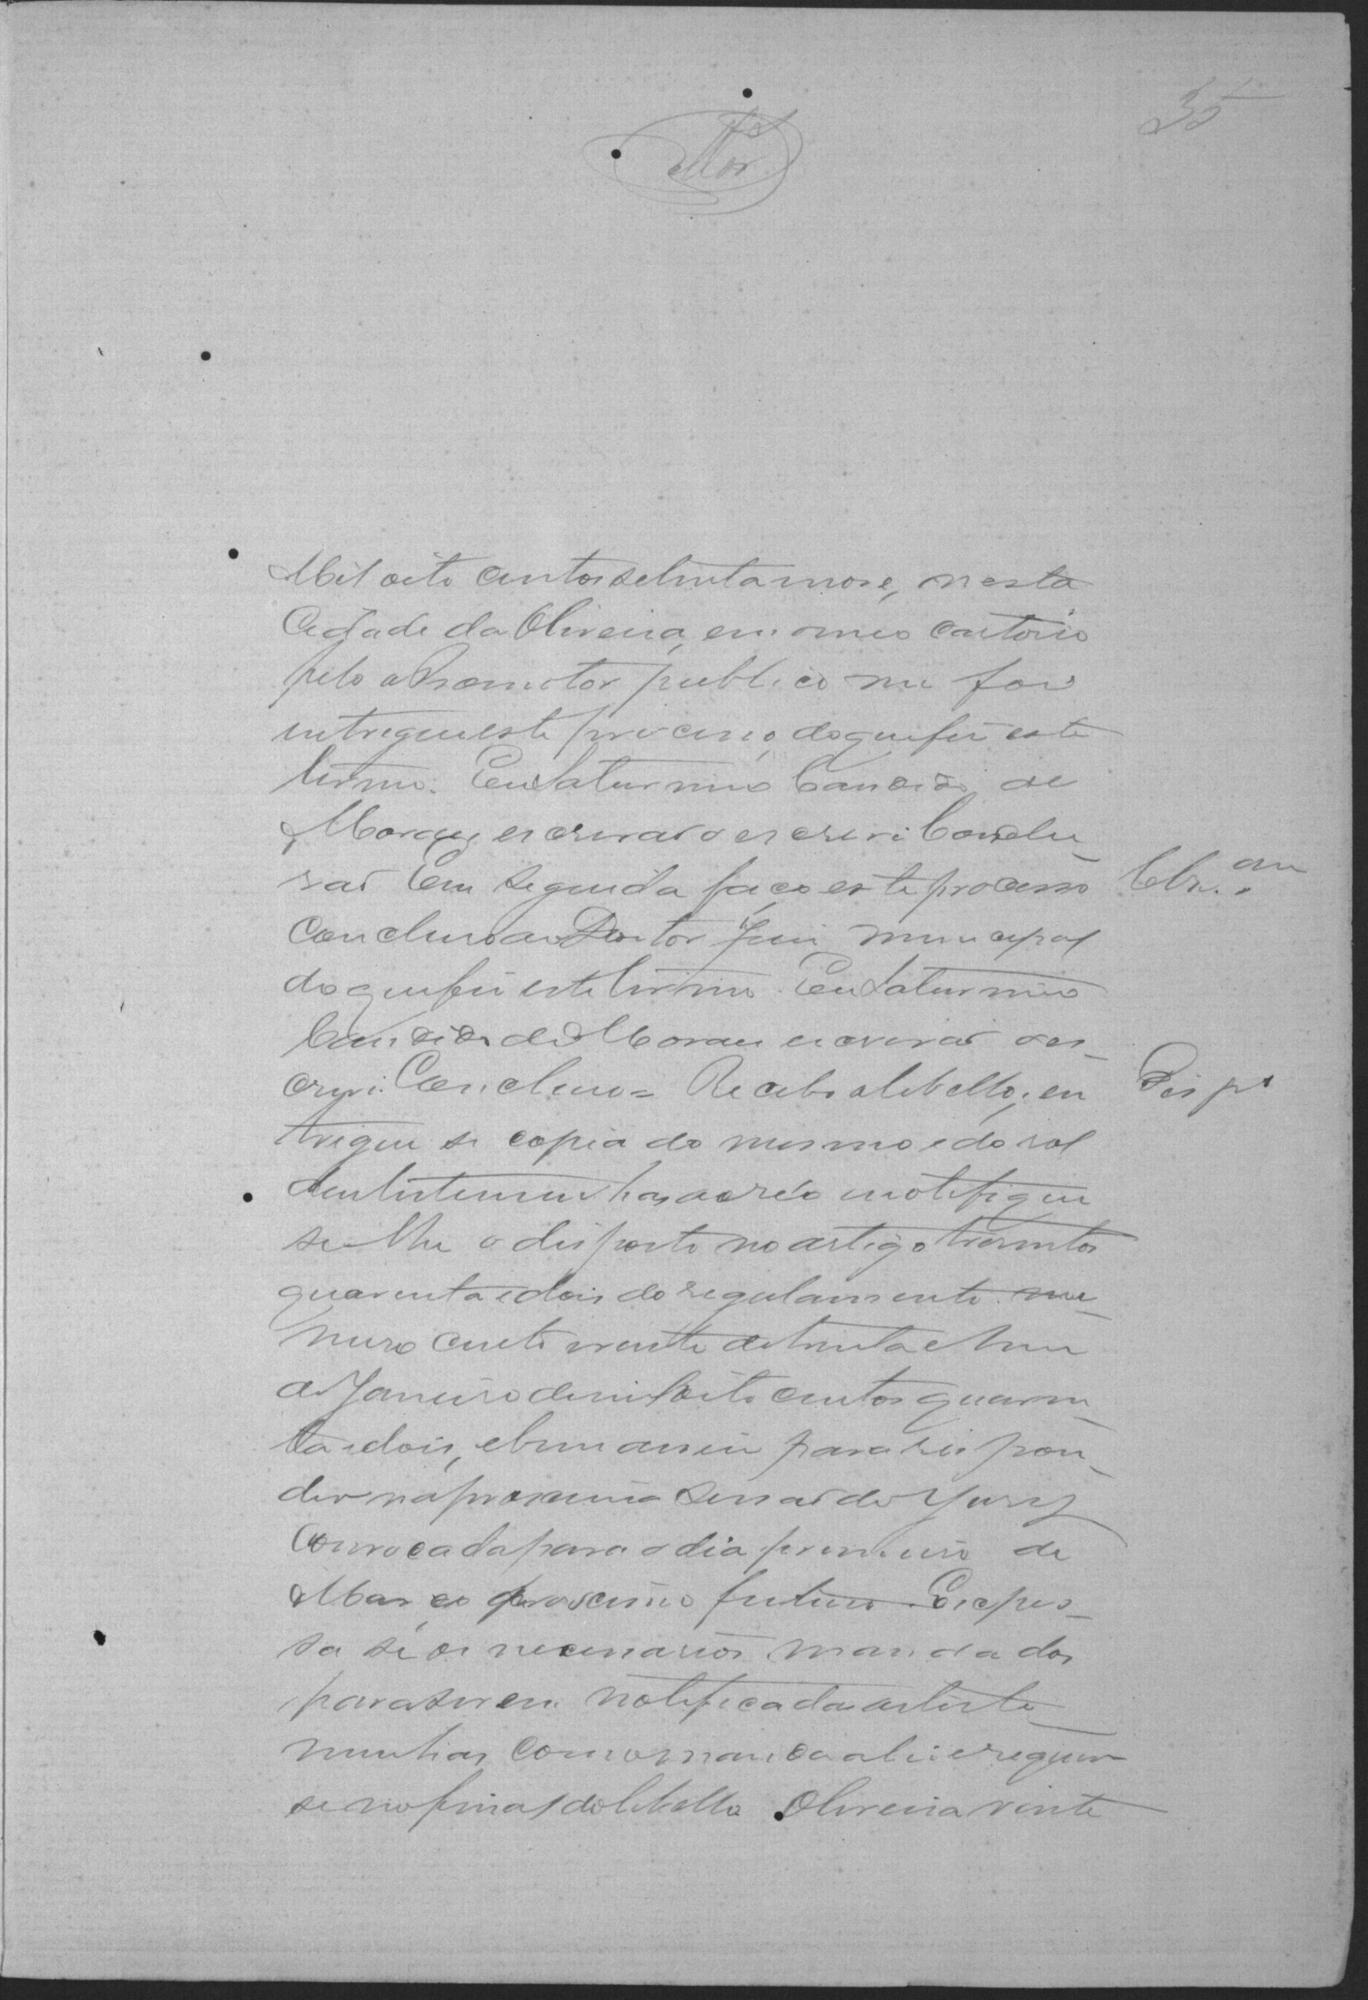 35
Mor
Mil oito centos setenta nove, nesta
Cidade da Oliveira, em o meo cartorio
pelo o Promotor publico me foi
intregue este processo, do que fis este
termo. Eu Saturnino Candido de
Moraes escrivão o escrevi. Conclu
são Em seguida faço este processo Clz.am
Concluso ao Doutor Juis municipal
do que fis este termo. Eu Saturnino
Candido de Moraes escrivão o es_
crevi. Concluso = Recebo o libello, en Desp.º
tregue se copia do mesmo e do rol
das testemunhas ao réo e notifique
se lhe o disposto no artigo tresentos
quarenta e dois do regulamento nu_
mero cento e vinte de trinta e hum
de Janeiro de mil oito centos quaren_
ta e dois, e bem assim para res pon_
der na proxima sessão do Jury
Convocada para o dia primeiro de
Março proximo futuro. Expes_
sa se os necessarios mandados
para serem notificadas as teste_
munhas como manda a lei e requer
se no final do libello. Oliveira vinte